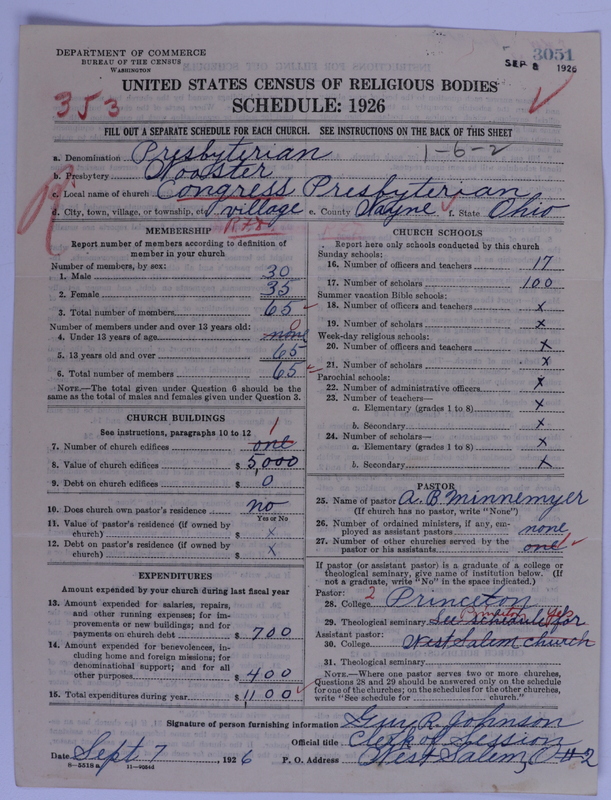 DEPARTMENT OF COMMERCE
BUREAU OF THE CENSUS
WASHINGTON
3051
SEP 8 1926
353
UNITED STATES CENSUS OF RELIGIOUS BODIES
SCHEDULE: 1926
FILL OUT A SEPARATE SCHEDULE FOR EACH CHURCH. SEE INSTRUCTIONS ON THE BACK OF THIS SHEET
a. Denomination Presbyterian 1-6-2
b. Presbytery Wooster
c. Local name of church Congress Presbyterian
d. City, town, village, or township, etc. village e. County Wayne f. State Ohio
MEMBERSHIP
Report number of members according to definition of
member in your church
Number of members, by sex:
1. Male 30
2. Female 35
3. Total number of members 65
Number of members under and over 13 years old:
4. Under 13 years of age none 0
5. 13 years old and over 65
6. Total number of members 65
NOTE.—The total given under Question 6 should be the
same as the total of males and females given under Question 3.
CHURCH BUILDINGS
See instructions, paragraphs 10 to 12
7. Number of church edifices one 1
8. Value of church edifices $ 5,000
9. Debt on church edifices $ 0
10. Does church own pastor's residence no
Yes or No
11. Value of pastor's residence (if owned by
church) $ x
12. Debt on pastor's residence (if owned by
church) $ x
EXPENDITURES
Amount expended by your church during last fiscal year
13. Amount expended for salaries, repairs,
and other running expenses; for im-
provements or new buildings; and for
payments on church debt $ 700
14. Amount expended for benevolences, in-
cluding home and foreign missions; for
denominational support; and for all
other purposes $ 400
15. Total expenditures during year $ 1100
CHURCH SCHOOLS
Report here only schools conducted by this church
Sunday schools:
16. Number of officers and teachers 17
17. Number of scholars 100
Summer vacation Bible schools:
18. Number of officers and teachers x
19. Number of scholars x
Week-day religious schools:
20. Number of officers and teachers x
21. Number of scholars x
Parochial schools:
22. Number of administrative officers x
23. Number of teachers—
a. Elementary (grades 1 to 8) x
b. Secondary x
24. Number of scholars—
a. Elementary (grades 1 to 8) x
b. Secondary x
PASTOR
25. Name of pastor A. B. Minnemyer
(If church has no pastor, write "None")
26. Number of ordained ministers, if any, em-
ployed as assistant pastors none
27. Number of other churches served by the
pastor or his assistants one 1
If pastor (or assistant pastor) is a graduate of a college or
theological seminary, give name of institution below. (If
not a graduate, write "No" in the space indicated.)
Pastor: 2
28. College Princeton
29. Theological seminary See schedule for
Assistant pastor:
30. College West Salem church
31. Theological seminary
NOTE.—Where one pastor serves two or more churches,
Questions 28 and 29 should be answered only on the schedule
for one of the churches; on the schedules for the other churches,
write "See schedule for ........ church."
Signature of person furnishing information Guy R. Johnson
Official title Clerk of Session
Date Sept 7, 1926 P. O. Address West Salem, O
8-5518 a 11-9084d